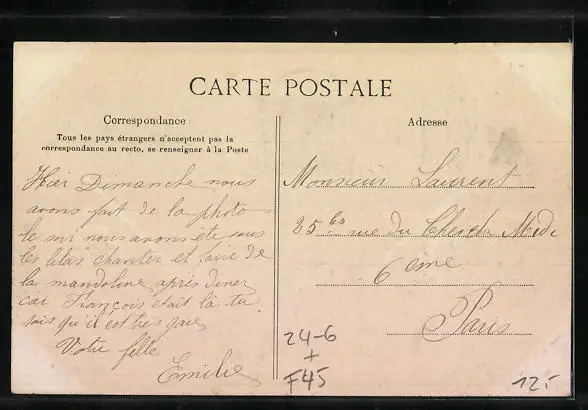 CARTE POSTALE
Correspondance
Tous les pays étrangers n'acceptent pas la
correspondance au recto, se renseigner à la Poste
Hier Dimanche nous
avons fait de la photo
le soir nous avons été sous
les lilas chanter et faire de
la mandoline après diner
car François était là tu
sais qu'il est très gai
Votre fille
Emilie
Adresse
Monsieur Laurent
25 bis rue du Cherch Midi
6 ème
Paris
24-6
+
F45
12,-